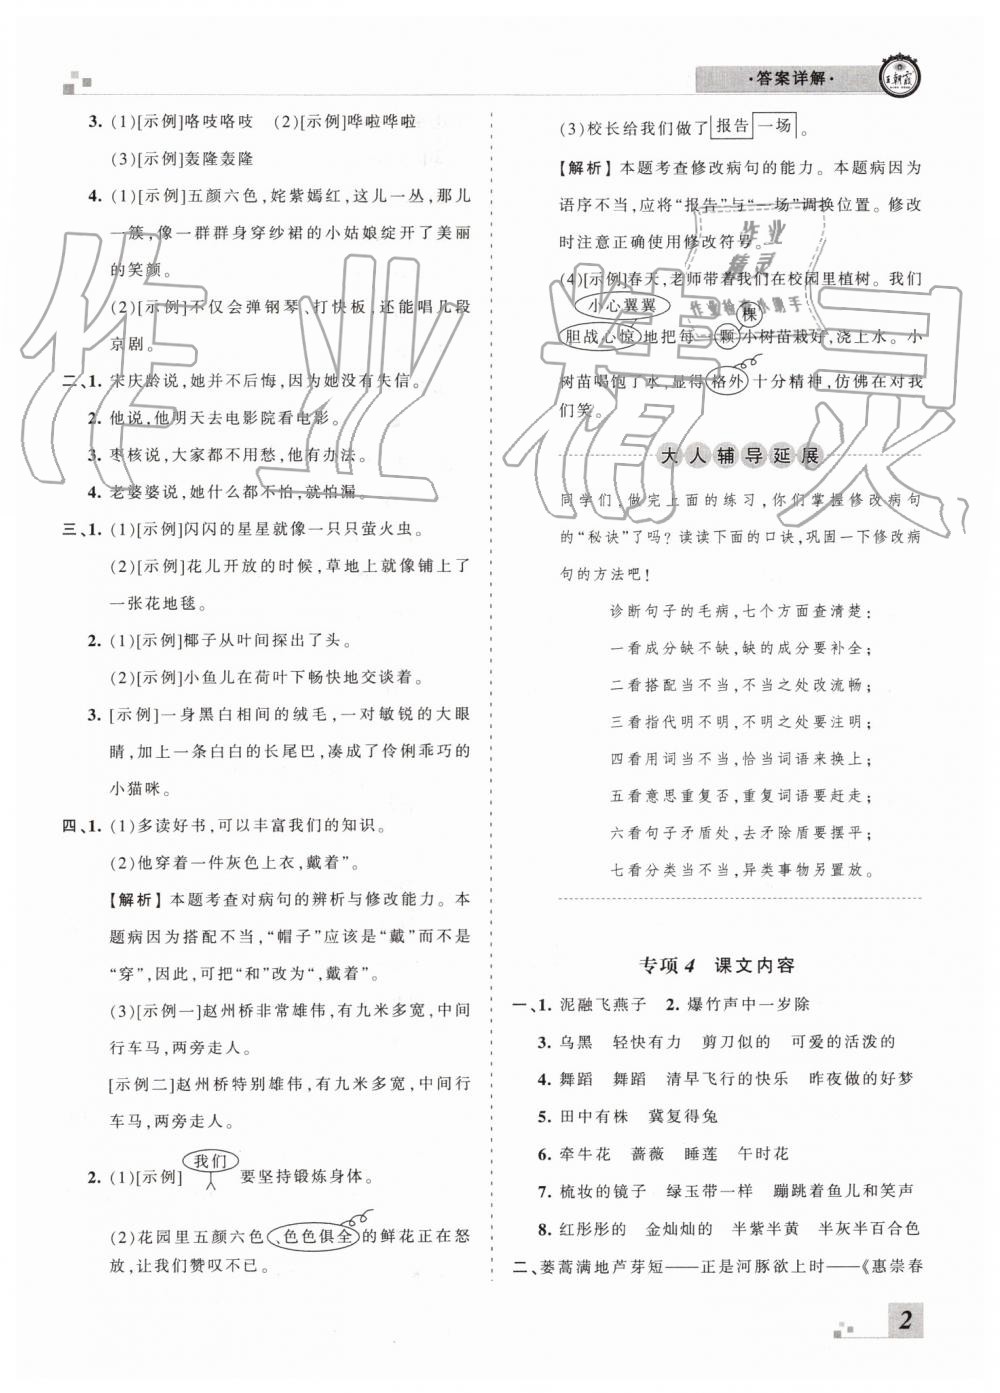 ·答案详解·
王朝霞
3. (1)[示例]咯吱咯吱 (2)[示例]哗啦哗啦
(3)[示例]轰隆轰隆
4. (1)[示例]五颜六色,姹紫嫣红,这儿一丛,那儿
一簇,像一群群身穿纱裙的小姑娘绽开了美丽
的笑颜。
(2)[示例]不仅会弹钢琴、打快板,还能唱几段
京剧。
二、1. 宋庆龄说,她并不后悔,因为她没有失信。
2. 他说,他明天去电影院看电影。
3. 枣核说,大家都不用愁,他有办法。
4. 老婆婆说,她什么都不怕,就怕漏。
三、1. (1)[示例]闪闪的星星就像一只只萤火虫。
(2)[示例]花儿开放的时候,草地上就像铺上了
一张花地毯。
2. (1)[示例]椰子从叶间探出了头。
(2)[示例]小鱼儿在荷叶下畅快地交谈着。
3. [示例]一身黑白相间的绒毛,一对敏锐的大眼
睛,加上一条白白的长尾巴,凑成了伶俐乖巧的
小猫咪。
四、1. (1)多读好书,可以丰富我们的知识。
(2)他穿着一件灰色上衣,戴着”。
【解析】本题考查对病句的辨析与修改能力。本
题病因为搭配不当,“帽子”应该是“戴”而不是
“穿”,因此,可把“和”改为“,戴着”。
(3)[示例一]赵州桥非常雄伟,有九米多宽,中间
行车马,两旁走人。
[示例二]赵州桥特别雄伟,有九米多宽,中间行
车马,两旁走人。
我们
2. (1)[示例] 要坚持锻炼身体。
(2)花园里五颜六色、色色俱全的鲜花正在怒
放,让我们赞叹不已。
(3)校长给我们做了报告一场。
【解析】本题考查修改病句的能力。本题病因为
语序不当,应将“报告”与“一场”调换位置。修改
时注意正确使用修改符号。
(4)[示例]春天,老师带着我们在校园里植树。我们
小心翼翼 棵
胆战心惊地把每一颗小树苗栽好,浇上水。小
树苗喝饱了水,显得格外十分精神,仿佛在对我
们笑。
大人辅导延展
同学们,做完上面的练习,你们掌握修改病句
的“秘诀”了吗?读读下面的口诀,巩固一下修改病
句的方法吧!
诊断句子的毛病,七个方面查清楚;
一看成分缺不缺,缺的成分要补全;
二看搭配当不当,不当之处改流畅;
三看指代明不明,不明之处要注明;
四看用词当不当,恰当词语来换上;
五看意思重复否,重复词语要赶走;
六看句子矛盾处,去矛除盾要摆平;
七看分类当不当,异类事物另置放。
专项4 课文内容
一、1. 泥融飞燕子 2. 爆竹声中一岁除
3. 乌黑 轻快有力 剪刀似的 可爱的活泼的
4. 舞蹈 舞蹈 清早飞行的快乐 昨夜做的好梦
5. 田中有株 冀复得兔
6. 牵牛花 蔷薇 睡莲 午时花
7. 梳妆的镜子 绿玉带一样 蹦跳着鱼儿和笑声
8. 红彤彤的 金灿灿的 半紫半黄 半灰半百合色
二、蒌蒿满地芦芽短——正是河豚欲上时——《惠崇春
2
作业精灵
作业
精灵
作业检查小助手